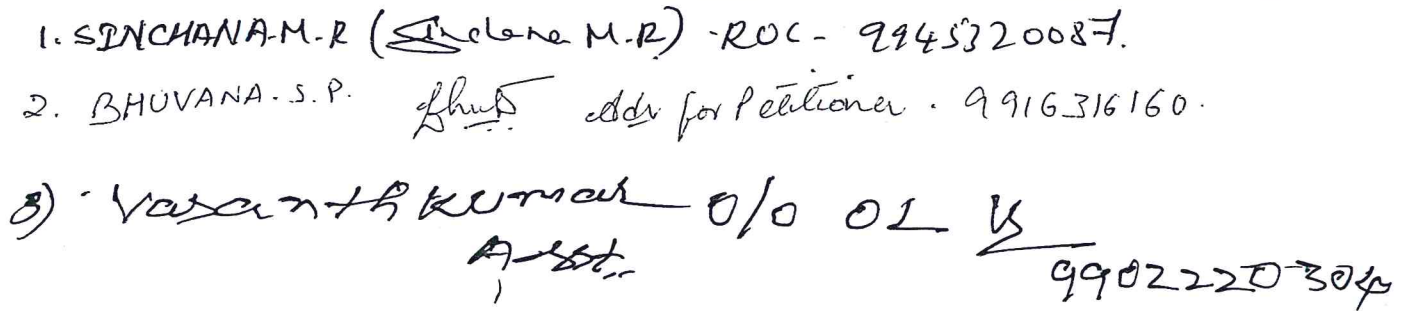 1. SINCHANA-M-R (Sinchana M.R) -ROC- 9945320087.
2. BHUVANA. S. P. Adv for Petitioner. 9916316160.
3) Vasanthkumar O/o OL
Asst.
9902220304